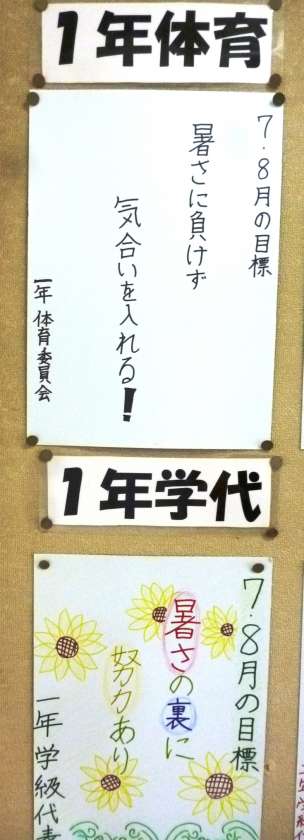 1年体育
7・8月の目標
暑さに負けず
気合いを入れる!
一年 体育委員会
1年学代
7・8月の目標
暑さの裏に
努力あり
一年学級代表